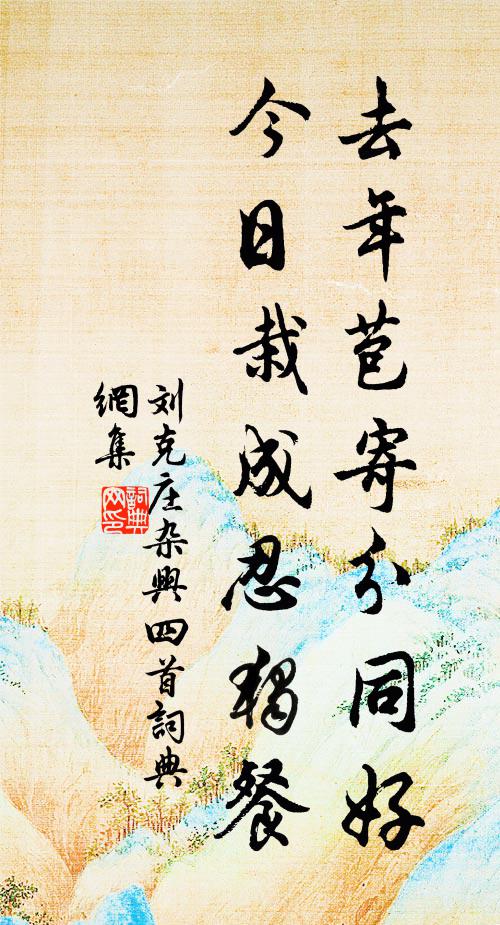 去年苞寄分同好
今日栽成忍独餐
刘克庄杂興四首詞典
網集
詞典
网印